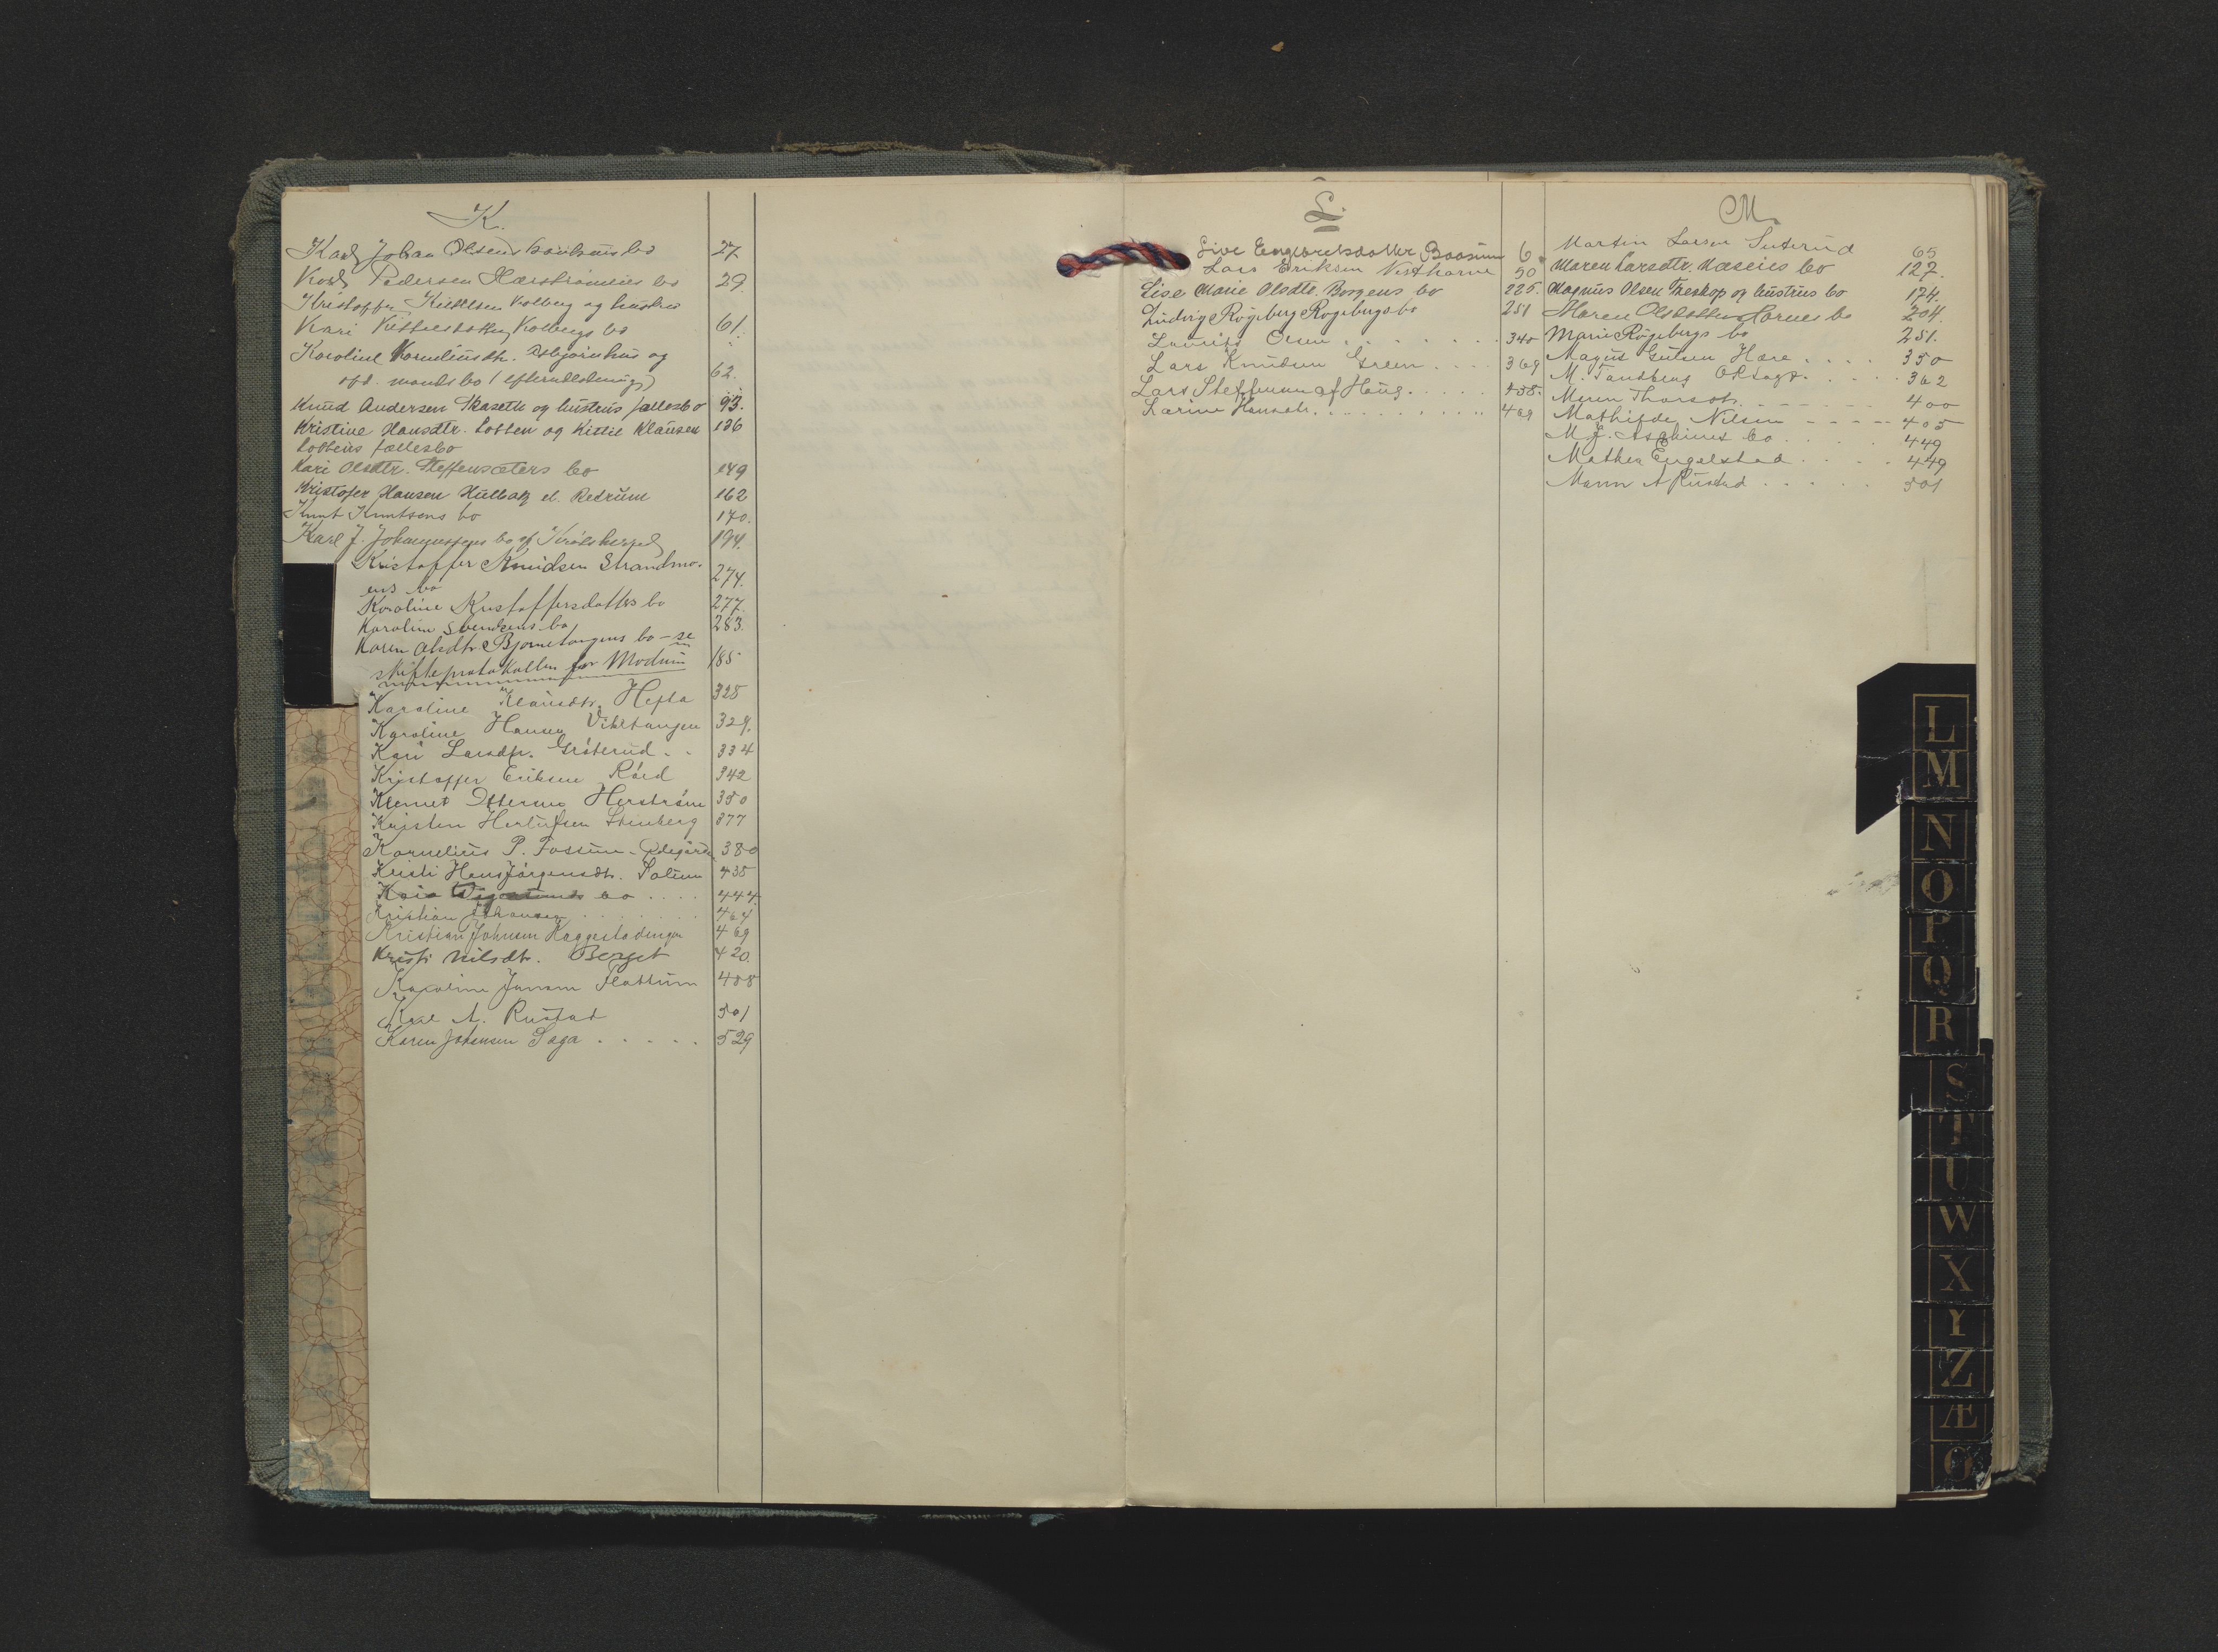 K.
Karl Johan Olsens bo 27
Karl Pedersen Hærstrømeies bo 29
Kristoffer Kittelsen Kolberg og hustru
Kari Kittelsdatter Kolbergs bo 61.
Karoline Korneliusdtr. Asbjørnhus og
afd. mands bo (efterutlodning) 62.
Knud Andersen Skasetts og hustrus fællesbo 93.
Kristine Hansdtr. Lobben og Kittil Klausen 136
Lobbens fællesbo
Kari Olsdtr. Steffensæters bo 149
Kristofer Hansen Hulbak el. Redrum 162
Knut Knutsens bo 170.
Karl J. Johannessens bo af 194.
Kristoffer Knudsen Strandmo-
ens bo 274.
Karoline Kristoffersdatters bo 277.
Karolin Svendsens bo 283.
Karen Olsdtr. Bjørnetangens bo - se
skifteprotokollen for Modum 185
Karoline Klausdtr. Hefta 325
Karoline Hansen Vikertangen 329.
Kari Larsdtr. Grøterud . . 334
Kristoffer Eriksen Røed 342
Klemet Ottersen Herstrøm 350
Kristen Hertufsen Stenberg 377
Kornelius P. Fossum - Ødegården 380
Kristi Hans Jørgensdtr. Solum 435
Kaia bo . . . . 444
Kristian Johansen . . . . . . . 464
Kristian Johnsen Kaggestadengen 469
Kristi Nilsdtr. Berget 420.
Karoline Jensen Flattum 488
Karl A. Rustad 501
Karen Johansen Saga . . . . . 529
L.
Live Engebretsdatter Baasum 6
Lars Eriksen Vestharne 50
Lise Marie Olsdtr. Borgens bo 225.
Ludvig Røgeberg Røgebergs bo 251
Laurits Olsen . . . . . . . 340
Lars Knudsen Green . . . . 369
Lars Steffensen af Haug . . . . . 438.
Larine Hansdtr. . . . . . . . . . 469
M.
Martin Larsen Suterud 65
Maren Larsdtr. Mæseies bo 127.
Magnus Olsen Treskop og hustrus bo 174.
Maren Olsdatter Harnes bo 204.
Marie Røgebergs bo 251.
Magnus Gulsen Hære . . . . 350
M. Tandberg . . . . 362
Maren Thorsdtr. . . . . . . 400
Mathilde Nilsen - - - - - 405
M. J. Aschims bo . . . . . 449
Mathea Engelstad . . . . . 449
Maren A Rustad . . . . . 501
L
M
N
O
P
Q
R
S
T
U
W
X
Y
Z
Æ
Ø